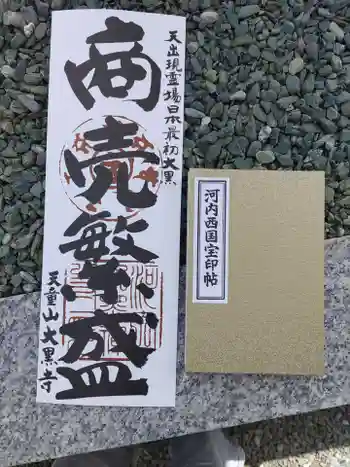 天出現霊場日本最初大黒
商売繁盛
天童山大黒寺
河内西国宝印帖